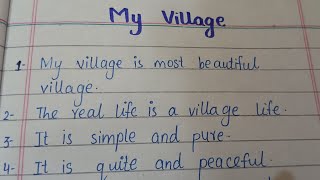 My Village
1- My village is most beautiful
village.
2- The real life is a village life.
3- It is simple and pure-
4- It is quite and peaceful.